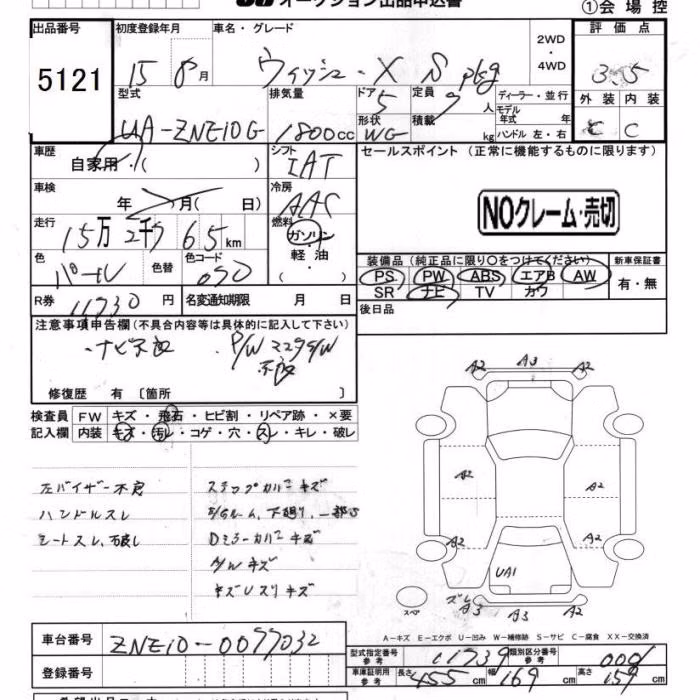 オークション出品申込書
①会場控
出品番号
5121
初度登録年月
15 8月
車名・グレード
ウィッシュ・X S pkg
2WD
・
4WD
評価点
3.5
型式
UA-ZNE10G
排気量
1800cc
ドア
5
形状
WG
定員
7人
積載
kg
ディーラー・並行
モデル
年式 年
ハンドル 左・右
外装
C
内装
C
車歴
自家用・( )
シフト
IAT
セールスポイント (正常に機能するものに限ります)
NOクレーム・売切
車検
年 月( 日)
冷房
AAC
走行
15万2千765km
燃料
ガソリン
軽油
( ・ )
色
パール
色替
色コード
070
装備品(純正品に限り○をつけてください)
PS PW ABS エアB AW
SR ナビ TV カワ
新車保証書
有・無
R券
11730円
名変通知期限 月 日
後日品
注意事項申告欄(不具合内容等は具体的に記入して下さい)
・ナビ不良 ・P/W
不良
修復歴 有〔箇所 〕
検査員
記入欄
FW キズ・飛石・ヒビ割・リペア跡・×要
内装 キズ・汚レ・コゲ・穴・スレ・キレ・破レ
左バイザー不良
ハンドルスレ
シートスレ、汚レ
ステップカバーキズ
E/Gルーム、下廻り、一部サビ
Dミラーカバーキズ
A/Wキズ
キズUスリキズ
A2 A3 A2
A2 A2
A2 A2
UA1
スペア
ズレ A3 A3 A2
A-キズ E-エクボ U-凹み W-補修跡 S-サビ C-腐食 XX-交換済
車台番号
ZNE10-0077032
登録番号
型式指定番号
参考
11739
類別区分番号
参考
0001
車庫証明用
参考
長さ 455cm 幅 169cm 高さ 159cm